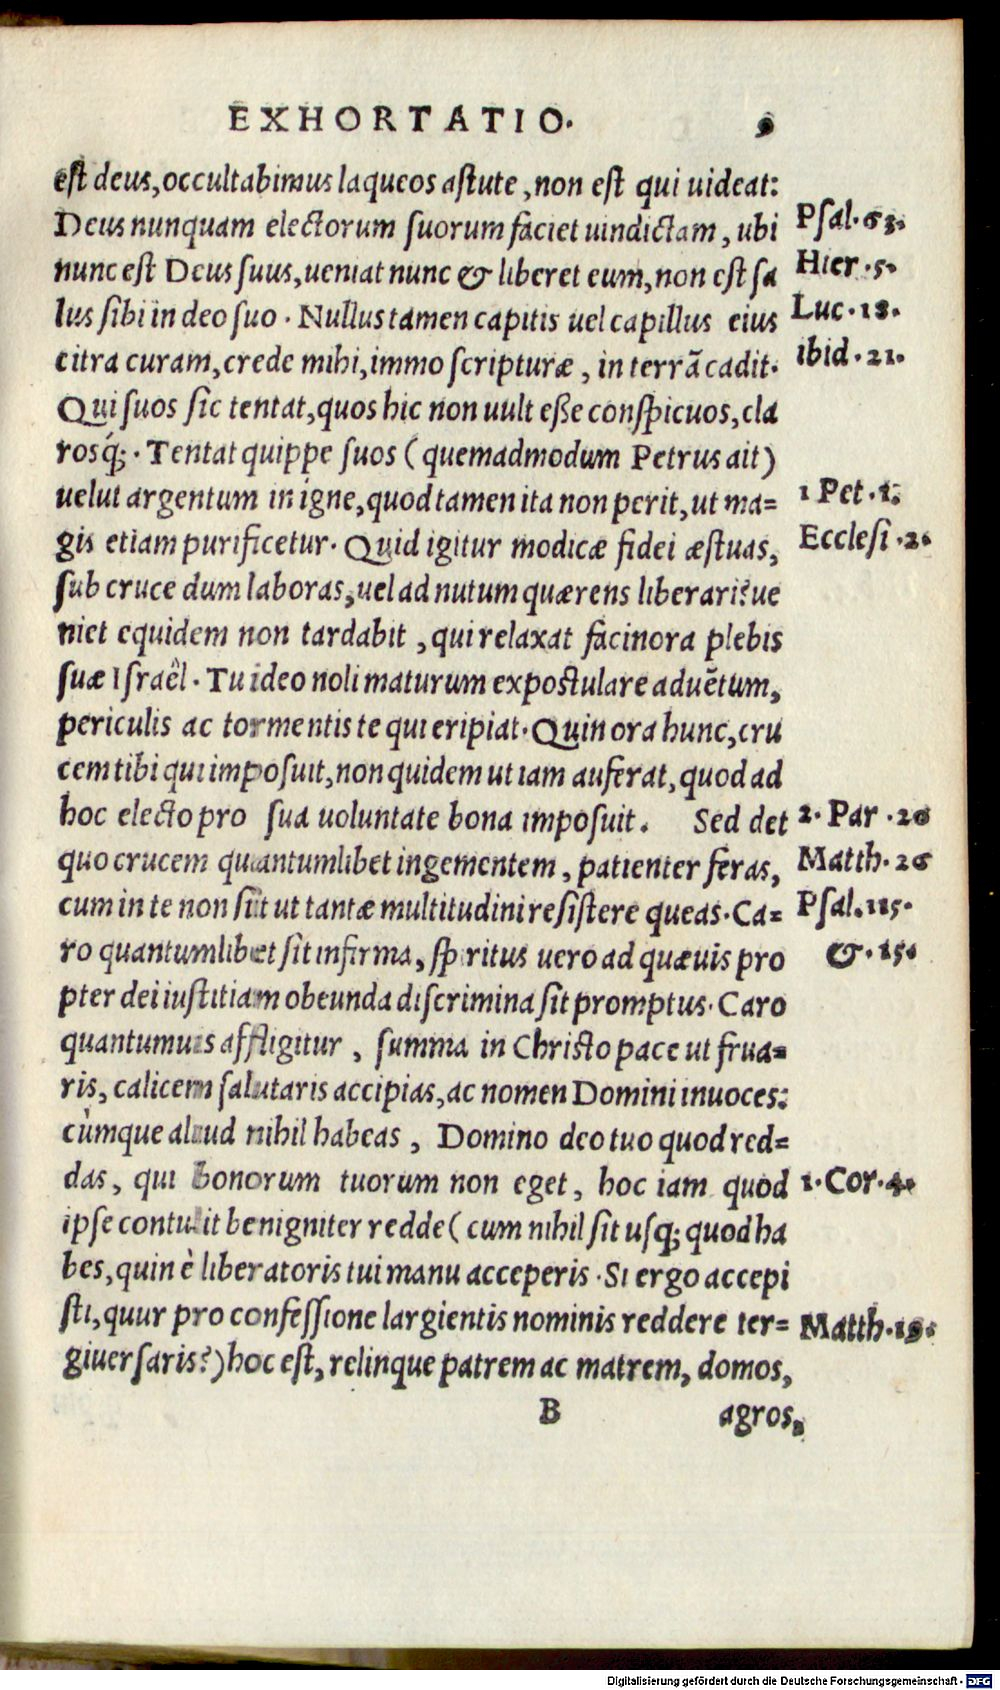 EXHORTATIO. 9
est deus, occultabimus laqueos astute, non est qui uideat:
Deus nunquam electorum suorum faciet uindictam, ubi
Psal. 63.
nunc est Deus suus, ueniat nunc & liberet eum, non est sa
Hier. 5.
lus sibi in deo suo. Nullus tamen capitis uel capillus eius
Luc. 18.
citra curam, crede mihi, immo scripturæ, in terrã cadit.
ibid. 21.
Qui suos sic tentat, quos hic non uult esse conspicuos, cla
rosq́;. Tentat quippe suos (quemadmodum Petrus ait)
uelut argentum in igne, quod tamen ita non perit, ut ma=
1 Pet. 1.
gis etiam purificetur. Quid igitur modicæ fidei æstuas,
Ecclesi. 2.
sub cruce dum laboras, uel ad nutum quærens liberari? ue
niet equidem non tardabit, qui relaxat facinora plebis
suæ Israël. Tu ideo noli maturum expostulare aduẽtum,
periculis ac tormentis te qui eripiat. Quin ora hunc, cru
cem tibi qui imposuit, non quidem ut iam auferat, quod ad
hoc electo pro sua uoluntate bona imposuit. Sed det
2. Par. 20
quo crucem quantumlibet ingementem, patienter feras,
Matth. 26
cum in te non siit ut tantæ multitudini resistere queas. Ca=
Psal. 115.
ro quantumlibet sit infirma, spiritus uero ad quæuis pro
&. 15.
pter dei iustitiam obeunda discrimina sit promptus. Caro
quantumuis affligitur, summa in Christo pace ut frua=
ris, calicem salutaris accipias, ac nomen Domini inuoces:
cùmque aliud nihil habeas, Domino deo tuo quod red=
das, qui bonorum tuorum non eget, hoc iam quod
1. Cor. 4.
ipse contulit benigniter redde (cum nihil sit usq; quod ha
bes, quin è liberatoris tui manu acceperis. Si ergo accepi
sti, quur pro confessione largientis nominis reddere ter=
Matth. 19.
giuersaris?) hoc est, relinque patrem ac matrem, domos,
B agros,
Digitalisierung gefördert durch die Deutsche Forschungsgemeinschaft - DFG